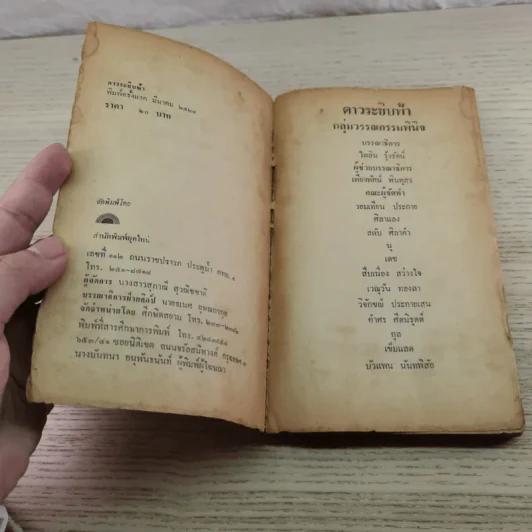 ดาวระยิบฟ้า
พิมพ์ครั้งแรก มีนาคม ๒๕๒๑
ราคา ๒๐ บาท
จัดพิมพ์โดย
สำนักพิมพ์ยุคใหม่
เลขที่ ๓๑๒ ถนนราชปรารภ ประตูน้ำ กทม. ๔
โทร.
ผู้จัดการ นางสาวสุภาณี สุวณิชชาติ
บรรณาธิการ
จัดจำหน่ายโดย ศึกษิตสยาม โทร.
พิมพ์ที่สารศึกษาการพิมพ์ โทร.
ซอยนิติเขต ถนนจรัสสนิทวงศ์
นางมันทนา อนุพันธนันท์ ผู้พิมพ์ผู้โฆษณา
ดาวระยิบฟ้า
กลุ่มวรรณกรรมพินิจ
บรรณาธิการ
วิตยิน รุ้งรัตน์
ผู้ช่วยบรรณาธิการ
เพียงพัศน์ พินทุสร
คณะผู้จัดทำ
วอมเทียน ประกาย
ศิลาแลง
สดับ ศิลาคำ
นุ
เดช
สืบเนื่อง สว่างใจ
เวณุวัน ทองลา
วิจักขณ์ ประกายเสน
คำศร ศึตนิรุตต์
กุล
เข็มแสด
บัวแพน นันทพิสัย